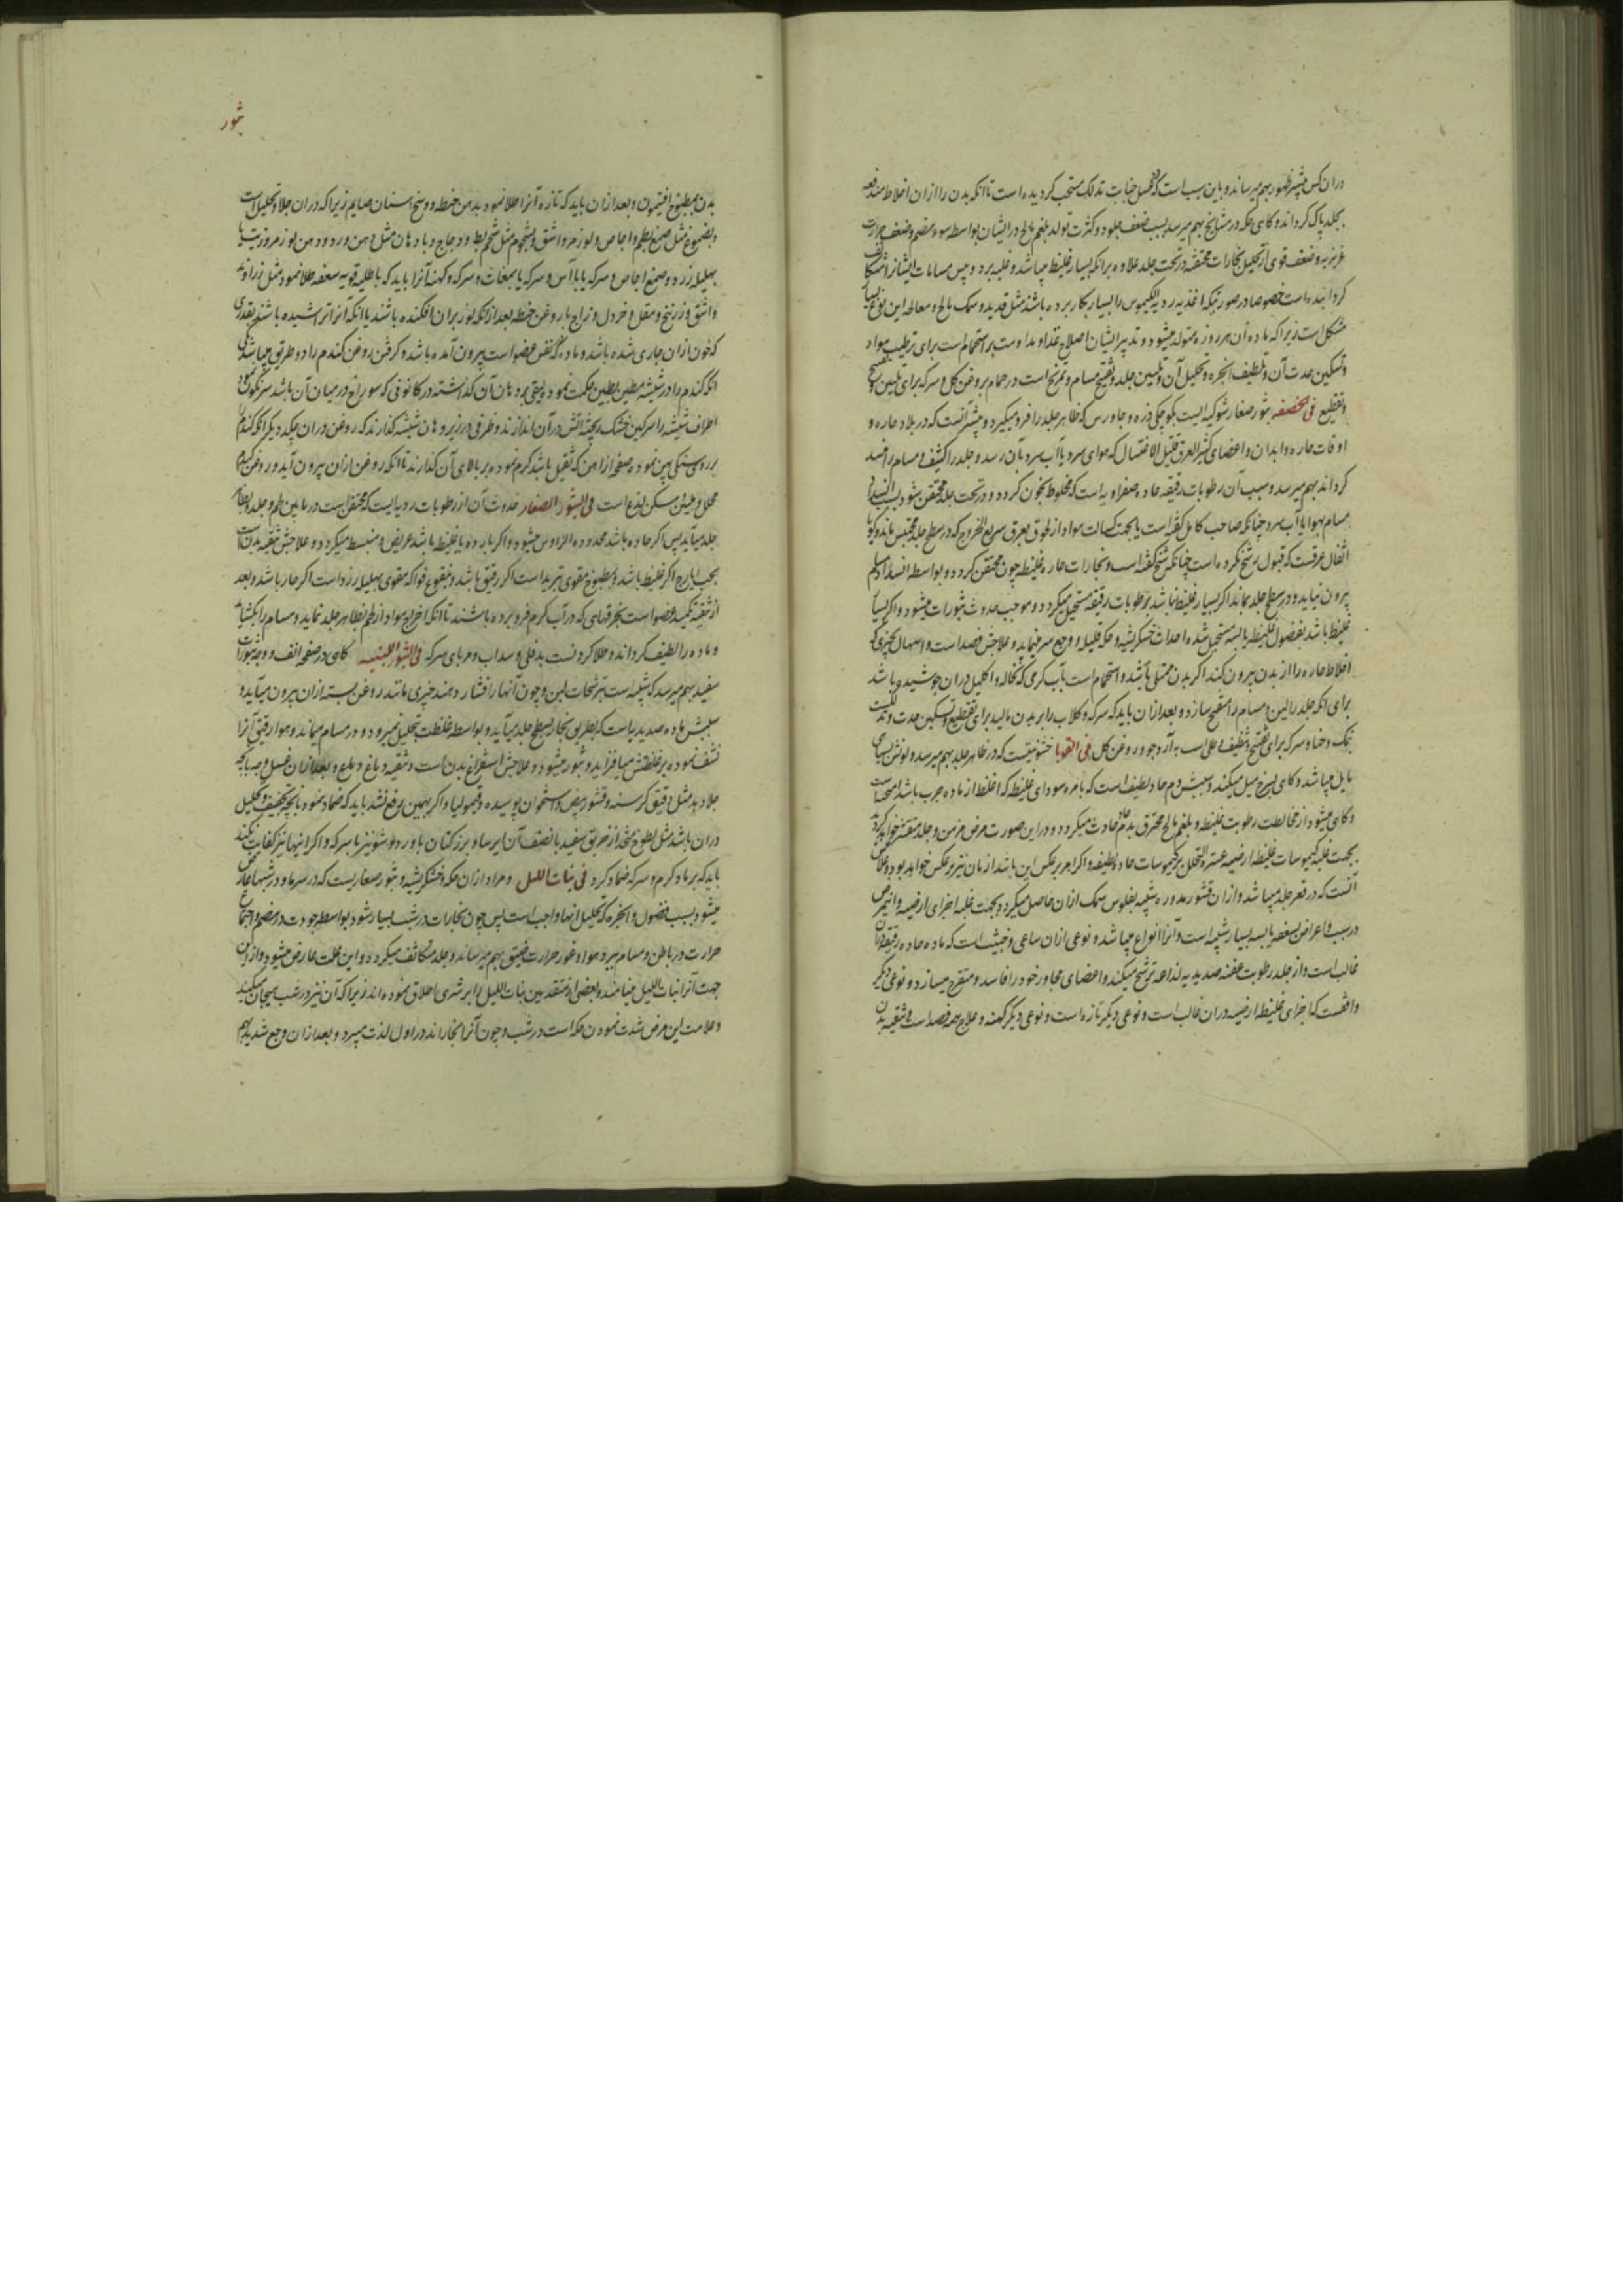 در ان کس بیشتر ظهور بهم میرساند و باین سبب است که غسل جنابت تدلک مستحب گردیده است تا آنکه بدن را از ان اخلاط مندفعه
بجلد پاک گرداند و گاهی حکه در مشایخ بهم میرسد بسبب ضعف جلود و کثرت تولد بلغم مالح در ایشان بواسطه سوء هضم و ضعف حرارت
غریزیه و ضعف قوی از تحلیل بخارات محتقنه در تحت جلد علاوه بر آنکه بسیار غلیظ میباشد و غلبه برد و یبس مسامات ایشانرا
گردانیده است خصوصا در صورتیکه اغذیه ردیه الکیموس را بسیار بکار برده باشند مثل قدید و سمک مالح و معالجه این نوع بسیار
مشکل است زیرا که ماده آن هر روزه متولد میشود و تدبیر ایشان اصلاح غذا و مداومت بر استحمام است برای ترطیب مواد
و تسکین حدت آن و تلطیف ابخره و تحلیل آن و تلیین جلد و تفتیح مسام و تمریخ است در حمام بروغن گل و سرکه برای تلیین و تفتیح
و تقطیع فی الحصف بثور صغار شوکیه ایست بکوچکی ذره و جاورس که ظاهر جلد را فرو میگیرد و بیشتر آنست که در بلاد حاره و
اوقات حاره و ابدان و اعضای کثیر العرق قلیل الاغتسال که هوای سرد یا آب سرد بآن رسد و جلد را کثیف و مسام را منسد
گرداند بهم میرسد و سبب آن رطوبات رقیقه حاده صفراویه است که مخلوط بخون گردد و در تحت جلد محتقن شود بسبب انسداد
مسام بهوا یا آب سرد چنانکه صاحب کامل گفته است یا بجهت کسالت مواد از لحوق بعرق سریع الخروج که در سطح جلد محتبس ماند و گویا
اثفال عرقست که قبول رشح نکرده است چنانکه شیخ گفته است و بخارات حاره غلیظه چون محتقن گردد و بواسطه انسداد مسام
بیرون نیاید و در سطح جلد بماند اگر بسیار غلیظ نباشد برطوبات رقیقه مستحیل میگردد و موجب حدوث بثورات میشود و اگر بسیار
غلیظ باشد بفضول غلیظه یابسه مستحیل شده احداث خشکریشه و حکه قلیله و وجع میرنماید و علاجش فصد است و اسهال بچیزی که
اخلاط حاره را از بدن بیرون کند اگر بدن ممتلی باشد و استحمام است بآب گرمی که نخاله و اکلیل در ان جوشیده باشد
برای آنکه جلد را لین و مسام را متفتح سازد و بعد از ان باید که سرکه و گلاب را بر بدن مالید برای تقطیع و تسکین حدت و
نمک و حنا و سرکه برای تفتیح و تنظیف اعلی است به آرد جو و روغن گل فی القوبا خشونتیست که در ظاهر جلد بهم میرسد و لونش بسیاهی
مایل میباشد و گاهی بسرخ میل میکند و سببش دم حاد لطیف است که با مره سودای غلیظه که اغلظ از ماده جرب باشد
و گاهی میشود از مخالطت رطوبت غلیظه و بلغم مالح محترق بدم حادث میگردد و در این صورت مرض مزمن و جلد متقشر خواهد
بجهت غلبه کیموسات غلیظه ارضیه عسرة التحلل بر کیموسات حاده لطیفه و اگر امر برعکس این باشد ازمان نیز برعکس خواهد بود و
آنست که در قعر جلد میباشد و از ان قشور مدوره شبیه بفلوس سمک از ان حاصل میگردد بجهت غلبه اجزای ارضیه و این مرض
در سبب و اعراض بسعفه یابسه بسیار شبیه است و آنرا انواع میباشد و نوعی از ان ساعی و خبیث است که ماده حاده رقیقه در ان
غالب است و از جلد رطوبت عفنه صدیدیه لذاعه ترشح میکند و اعضای مجاور خود را فاسد و متقرح میسازد و نوعی دیگر
واقفست که اجزای غلیظه ارضیه در ان غالب است و نوعی دیگر تازه است و نوعی دیگر کهنه و علاج همه فصد است و تنقیه بدن
بثور
بدن بمطبوخ افتیمون و بعد از ان باید که تازه آنرا طلا نمود بدهن حنطه و وسخ اسنان صایم زیرا که در ان جلا و تحلیل است
و بصموغ مثل صمغ بطم و اجاص و لوز مر و اشق و بشحوم مثل شحم بط و دجاج و بادهان مثل دهن ورد و دهن لوز مر و زیت یا
بهلیله زرد و صمغ اجاص و سرکه یا با آس و سرکه یا بمغاث و سرکه و کهنه آنرا باید که با طلیه قویه سعفه طلا نمود مثل زراوند
و اشق و زرنیخ و مقل و خردل و زاج با روغن حنطه بعد از آنکه لوز بر ان افکنده باشند یا آنکه آنرا تراشیده باشند بقدری
که خون از ان جاری شده باشد و ماده که نفس عضو است بیرون آمده باشد و گرفتن روغن گندم را دو طریق میباشد یکی
آنکه گندم را در شیشه مطین بطین حکمت نموده لیفی بر دهان آن گذاشته در کانونی که سوراخ در میان آن باشد سرنگون
اطراف شیشه را سرگین خشک ریخته آتش در آن اندازند و ظرفی در زیر دهان شیشه گذارند که روغن در ان چکد دیگر آنکه گندم را
بر روی سنگی پهن نموده صفحه از آهن که ثقیل باشد گرم نموده بر بالای آن گذارند تا آنکه روغن از ان بیرون آید و روغن گندم
محلل و ملین و مسکن لذع است فی البثور الصغار حدوث آن از رطوبات ردیه ایست که محتقن است در مابین لحم و جلد و بظاهر
جلد میآید پس اگر حاده باشد محدوده الراس میشود و اگر بارده یا غلیظ باشد عریض و منبسط میگردد و علاجش تنقیه بدن است
بحب ایارج اگر غلیظ باشد و بمطبوخ مقوی تبرید است اگر رقیق باشد و بنقوع فواکه مقوی بهلیله زرد است اگر حار باشد و بعد
از تنقیه تکمید عضو است بخرقهای که در آب گرم فرو برده باشند تا آنکه اخراج مواد از لحم بظاهر جلد نماید و مسام را بگشاید
و ماده را لطیف گرداند و طلا کردنست بدفلی و سداب و مربای سرکه فی البثور اللبنیه گاهی در صفحه انف و وجه بثورات
سفید بهم میرسد که شبیه است بترشحات لبن و چون آنها را فشار دهند چیزی مانند روغن بسته از ان بیرون میآید و
سببش ماده صدیدیه است که بطریق بخار بسطح جلد میآید و بواسطه غلظت تحلیل نمیرود و در مسام میماند و هوا رقیق آنرا
نشف نموده بر غلظتش میافزاید و بثور میشود و علاجش استفراغ بدن است و تنقیه دماغ و بعد از ان غسل وجه باشیاء
جلا دهد مثل دقیق کرسنه و قشور بیض و استخوان پوسیده و قیمولیا و اگر بهمین برفع نشد باید که ضماد نمود بآنچه تجفیف و تحلیل
در ان باشد مثل لطوخ متخذ از خربق سفید با نصف آن ایرسا و بزر کتان با ورد و شونیز با سرکه و اگر اینها نیز کفایت نکند
باید که بر ماد کرم و سرکه ضماد کرد فی بنات اللیل و مراد از ان حکه و خشکریشه و بثور صغاریست که در سرما و در شبها عارض
میشود بسبب فضول و ابخره که تحلیل آنها واجب است پس چون بخارات در شب بسیار شود بواسطه جودت در هضم و اجتماع
حرارت در باطن و مسام ببرد هوا و غور حرارت ضیق بهم میرساند و جلد متکاثف میگردد و این علت عارض میشود و از این
جهت آنرا بنات اللیل مینامند و بعضی از متقدمین بنات اللیل را بر شری اطلاق نموده اند زیرا که آن نیز در شب هیجان میکند
و علامت این مرض شدت نمودن حکه است در شب و چون آنرا بخارانند در اول لذت میبرد و بعد از ان وجع شدید بهم